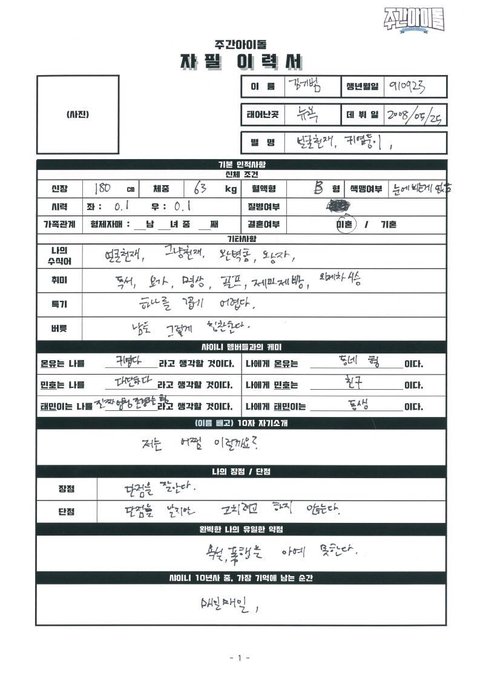 주간아이돌
주간아이돌
자필 이력서
(사진)
이 름 김기범 생년월일 910923
태어난곳 뉴욕 데 뷔 일 2008/05/25
별 명 얼굴천재, 귀염둥이,
기본 인적사항
신체 조건
신장 180 cm 체중 63 kg 혈액형 B 형 색맹여부 눈에 뵈는게 없음
시력 좌 : 0.1 우 : 0.1 질병여부
가족관계 형제자매 : 남 녀 중 째 결혼여부 미혼 / 기혼
기타사항
나의 수식어 얼굴천재, 그냥천재, 완벽돌, 왕자,
취미 독서, 요가, 명상, 골프, 제빵,
특기 하나를 꼽기 어렵다.
버릇 남을 그렇게 칭찬한다.
샤이니 멤버들과의 케미
온유는 나를 귀엽다 라고 생각할 것이다. 나에게 온유는 동네 형 이다.
민호는 나를 대단하다 라고 생각할 것이다. 나에게 민호는 친구 이다.
태민이는 나를 진짜 라고 생각할 것이다. 나에게 태민이는 동생 이다.
(이름 빼고) 10자 자기소개
저는 어쩜 이럴까요?
나의 장점 / 단점
장점 단점을 잘안다.
단점 단점을 알지만 고치려고 하지 않는다.
완벽한 나의 유일한 약점
욕설, 폭행을 아예 못한다.
샤이니 10년사 중, 가장 기억에 남는 순간
매일매일,
- 1 -